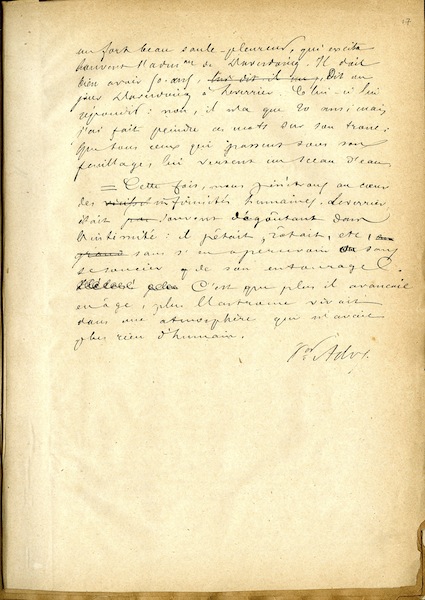 17
un fort beau saule-pleureur, qui excita
souvent l'adm.on de Desverdoing. Il doit
bien avoir 50 ans, lui dit-il un, Dit un
jour à Leverrier. Celui-ci lui
répondit : non, il n'a que 20 ans; mais
j'ai fait peindre ces mots sur son tronc :
Que tous ceux qui passent sous son
feuillage, lui versent un seau d'eau.
= Cette fois, nous pénétrons au cœur
des infirmités humaines. Leverrier
était souvent dégoûtant dans
l'intimité : il pétait, rôtait, etc,
grand sans s'en apercevoir ou sans
se soucier de son entourage.
C'est que plus il avançait
en âge, plus l'astronome vivait
dans une atmosphère qui n'avait
plus rien d'humain.